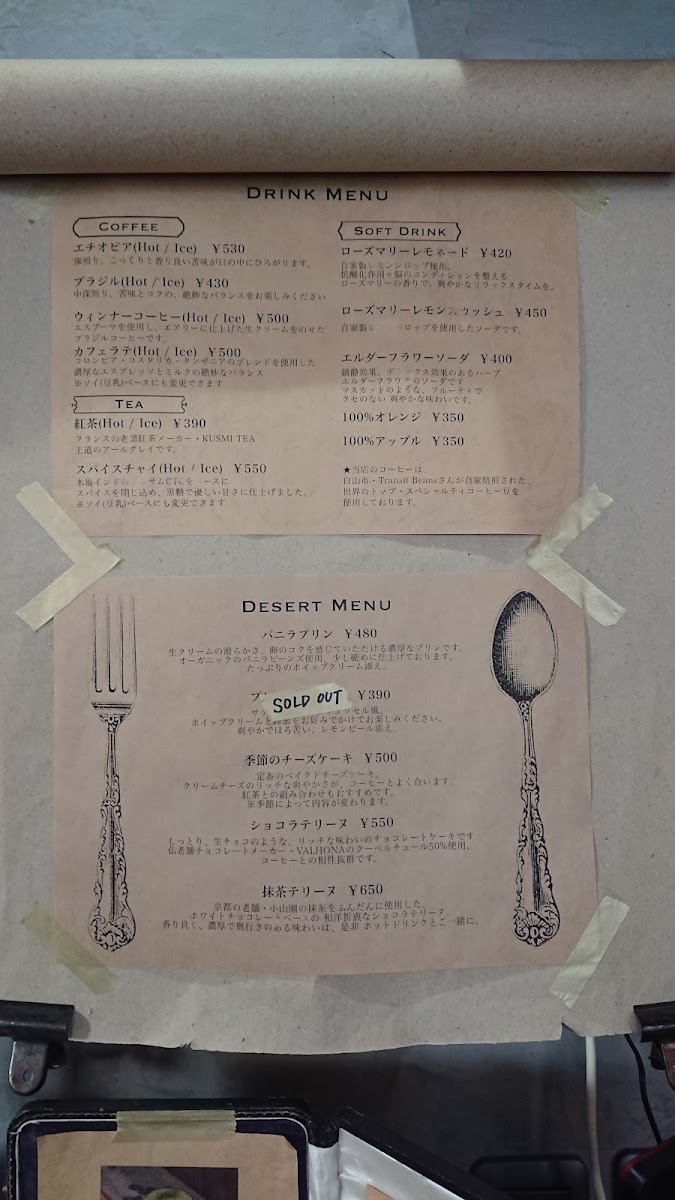 DRINK MENU
COFFEE
エチオピア(Hot / Ice) ￥530
深煎り、こっくりと香り良い苦味が口の中にひろがります。
ブラジル(Hot / Ice) ￥430
中深煎り、苦味とコクの、絶妙なバランスをお楽しみください
ウィンナーコーヒー(Hot / Ice) ￥500
エスプーマを使用し、エアリーに仕上げた生クリームをのせた
ブラジルコーヒーです。
カフェラテ(Hot / Ice) ￥500
コロンビア・コスタリカ・タンザニアのブレンドを使用した
濃厚なエスプレッソとミルクの絶妙なバランス
※ソイ(豆乳)ベースにも変更できます
TEA
紅茶(Hot / Ice) ￥390
フランスの老舗紅茶メーカー・KUSMI TEA
王道のアールグレイです。
スパイスチャイ(Hot / Ice) ￥550
本場インドの サムCTCをベースに
スパイスを閉じ込め、黒糖で優しい甘さに仕上げました。
※ソイ(豆乳)ベースにも変更できます
SOFT DRINK
ローズマリーレモネード ￥420
自家製レモンシロップ使用。
抗酸化作用+脳のコンディションを整える
ローズマリーの香りで、爽やかなリラックスタイムを。
ローズマリーレモンスカッシュ ￥450
自家製レ ロップを使用したソーダです。
エルダーフラワーソーダ ￥400
鎮静効果、デトックス効果のあるハーブ
エルダーフラワーのソーダです
マスカットのような、フルーティで
クセのない 爽やかな味わいです。
100%オレンジ ￥350
100%アップル ￥350
★当店のコーヒーは、
白山市・Transit Beansさんが自家焙煎された、
世界のトップ・スペシャルティコーヒー豆を
使用しております。
DESERT MENU
バニラプリン ￥480
生クリームの滑らかさ、卵のコクを感じていただける濃厚なプリンです。
オーガニックのバニラビーンズ使用、少し硬めに仕上げております。
たっぷりのホイップクリーム添え。
SOLD OUT ￥390
ッセル風。
ホイップクリームと をお好みでかけてお楽しみください。
爽やかでほろ苦い、レモンピール添え。
季節のチーズケーキ ￥500
定番のベイクドチーズケーキ。
クリームチーズのリッチな爽やかさが、コーヒーとよく合います。
紅茶との組み合わせもおすすめです。
※季節によって内容が変わります。
ショコラテリーヌ ￥550
しっとり、生チョコのような、リッチな味わいのチョコレートケーキです
仏老舗チョコレートメーカー・VALHONAのクーベルチュール50%使用。
コーヒーとの相性抜群です。
抹茶テリーヌ ￥650
京都の老舗・小山園の抹茶をふんだんに使用した、
ホワイトチョコレートベースの 和洋折衷なショコラテリーヌ。
香り良く、濃厚で奥行きのある味わいは、是非 ホットドリンクとご一緒に。